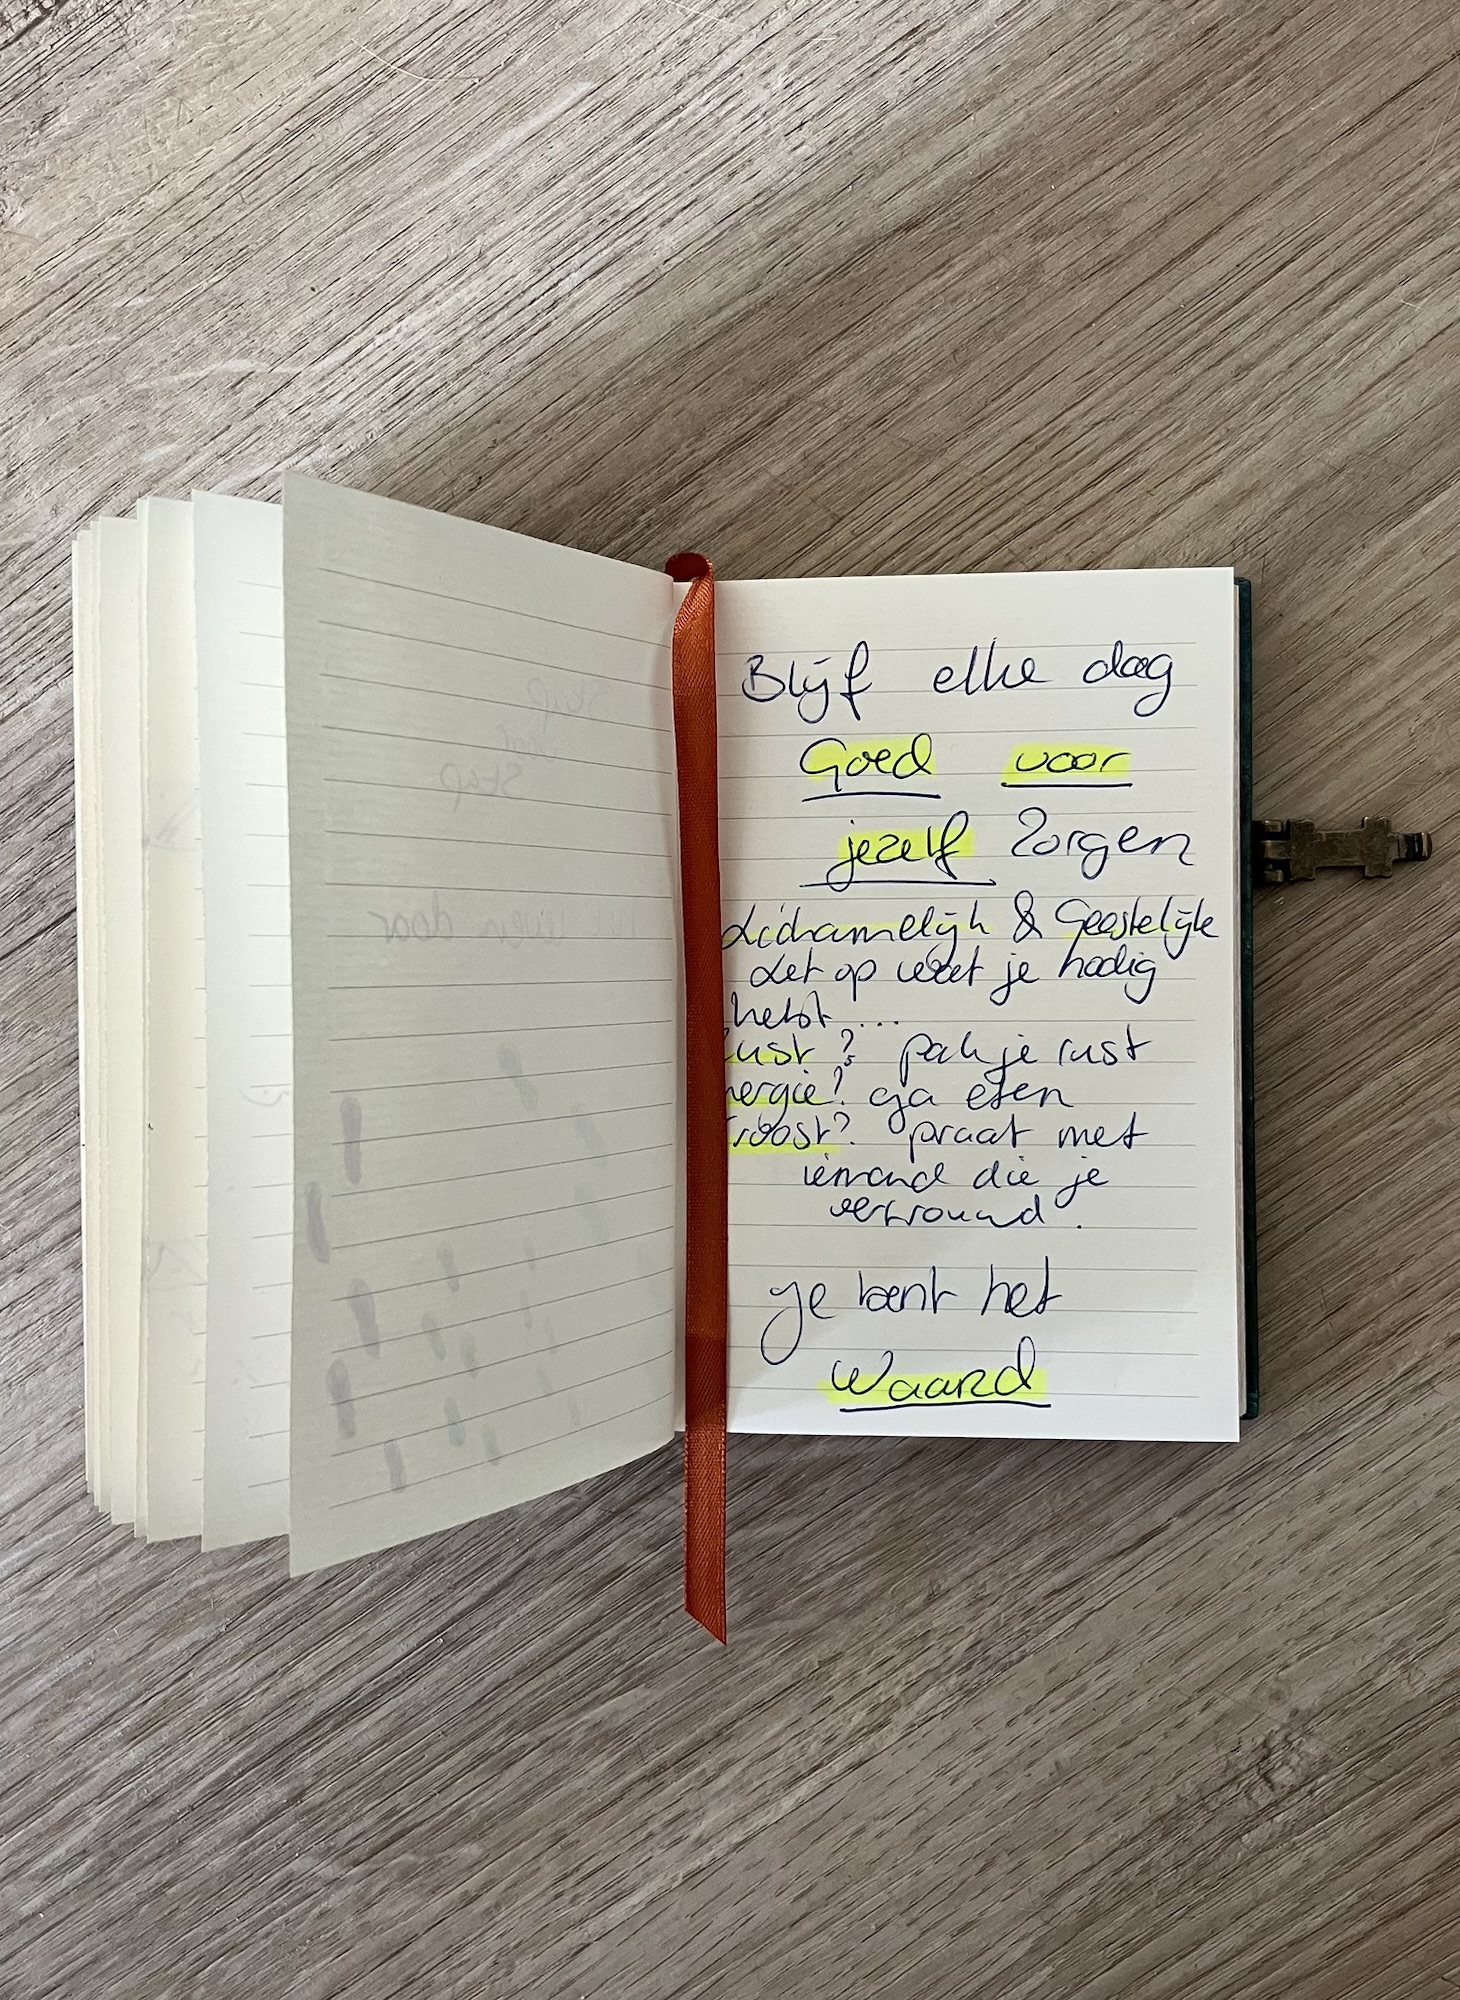 Blijf elke dag
Goed voor
jezelf zorgen
Lichamelijk & Geestelijk
Let op wat je nodig
hebt ...
ust? pak je rust
nergie? ga eten
roost? praat met
iemand die je
vertrouwd.
je bent het
waard